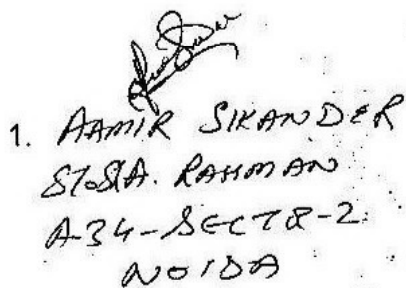 1. AAMIR SIKANDER
S/o S.A. RAHMAN
A34-SECTR-2
NOIDA